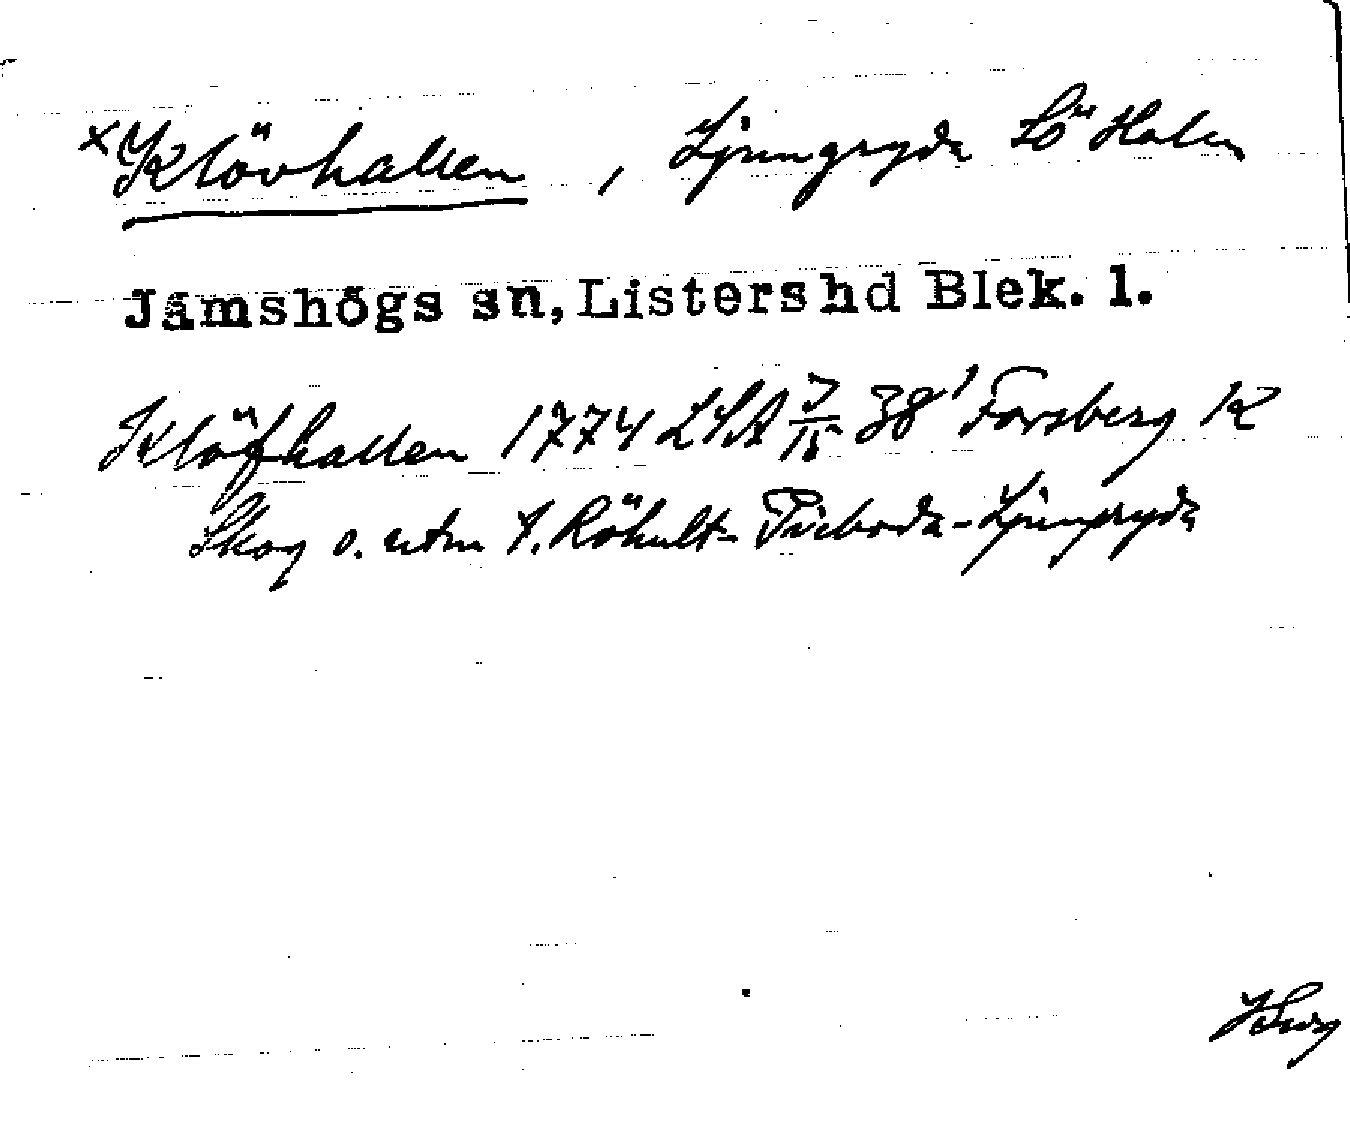 xKlövhallen, Ljungryda Lö Halen
Jämshögs sn, Listers hd Blek. l.
Klöfhallen 1774 LSA J/15 38' Forsberg K
Skog o. utm t. Röhult- -Ljungryda